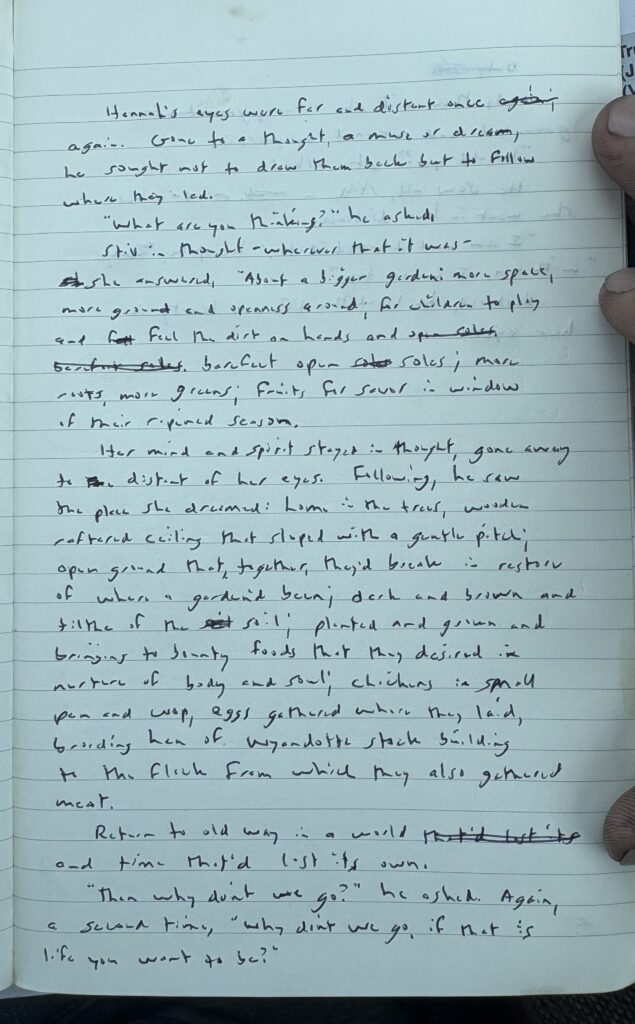 Hannah's eyes were far and distant once again,
again. Gone to a thought, a muse or dream,
he sought not to draw them back but to follow
where they led.
"What are you thinking?" he asked.
Still in thought - wherever that it was -
she answered, "About a bigger garden; more space,
more ground and openness around; for children to play
and feel the dirt on hands and open soles.
barefoot soles. barefeet open soles; more
roots, more greens; fruits for savor in window
of their ripened season.
Her mind and spirit stayed in thought, gone away
to distant of her eyes. Following, he saw
the place she dreamed: home in the trees, wooden
raftered ceiling that sloped with a gentle pitch;
open ground that, together, they'd break in restore
of where a garden'd been; dark and brown and
tilthe of the soil; planted and grown and
bringing to bounty foods that they desired in
nurture of body and soul; chickens in small
pen and, eggs gathered where they laid,
brooding hen of wyandotte stock building
to the flock from which they also gathered
meat.
Return to old way in a world that'd lost its
and time that'd lost its own.
"Then why don't we go?" he asked. Again,
a second time, "why don't we go, if that is
life you want to be?"
Tru
(J
(V